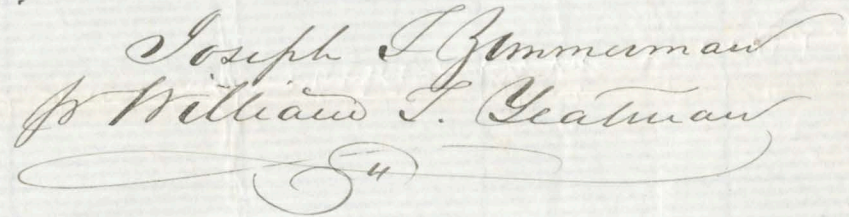 Joseph T Zimmerman
pr William T. Yeatman